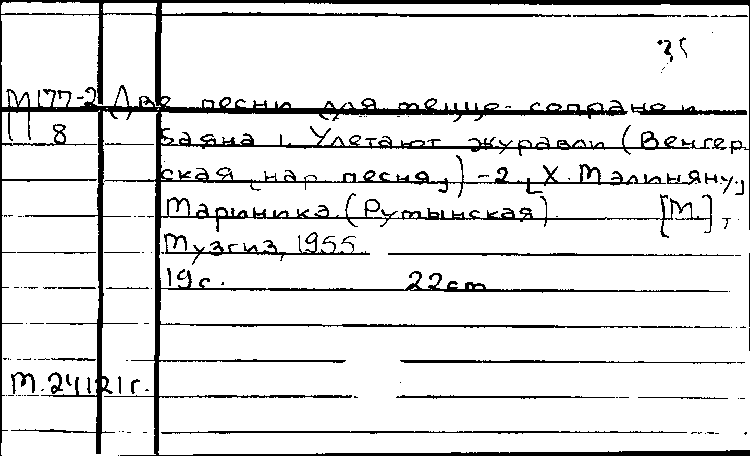 35
М177-2 Две песни для меццо-сопрано и
8 баяна 1. Улетают журавли (Венгер
ская [нар песня]) - 2. [Х. Мэлиняну.]
Мариника. (Румынская) [М.],
Музгиз, 1955.
19 с. 22 cm
М.24121г.